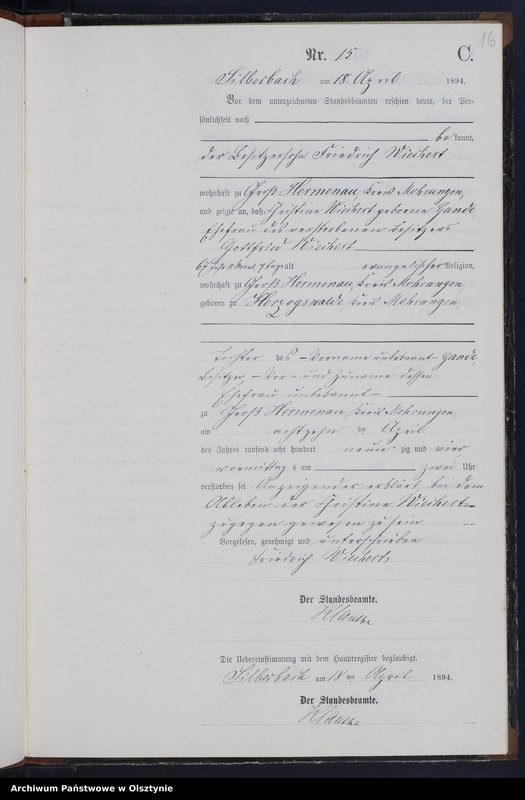 16
Nr. 15 C.
Silberbach am 18 April 1894.
Vor dem unterzeichneten Standesbeamten erschien heute, der Per-
sönlichkeit nach
be kannt,
der Besitzersohn Friedrich Wiechert
wohnhaft zu Groß Hermenau, Kreis Mohrungen,
und zeigte an, daß Christine Wiechert geborne Hande,
Ehefrau des verstorbenen Besitzers
Gottfried Wiechert
67 Jahr Monat 7 Tage alt evangelischer Religion,
wohnhaft zu Groß Hermenau, Kreis Mohrungen
geboren zu Herzogswalde, Kreis Mohrungen,
Tochter des – Vorname unbekannt – Hande,
Besitzer, – Vor- und Zuname dessen
Ehefrau unbekannt –
zu Groß Hermenau, Kreis Mohrungen,
am achtzehn ten April
des Jahres tausend acht hundert neun zig und vier
vormittag s um zwei Uhr
verstorben sei. Anzeigender erklärt, bei dem
Ableben der Christine Wiechert
zugegen gewesen zu sein
Vorgelesen, genehmigt und unterschrieben
Friedrich Wiechert
Der Standesbeamte.
Die Uebereinstimmung mit dem Hauptregister beglaubigt.
Silberbach am 18 ten April 1894.
Der Standesbeamte.
Archiwum Państwowe w Olsztynie